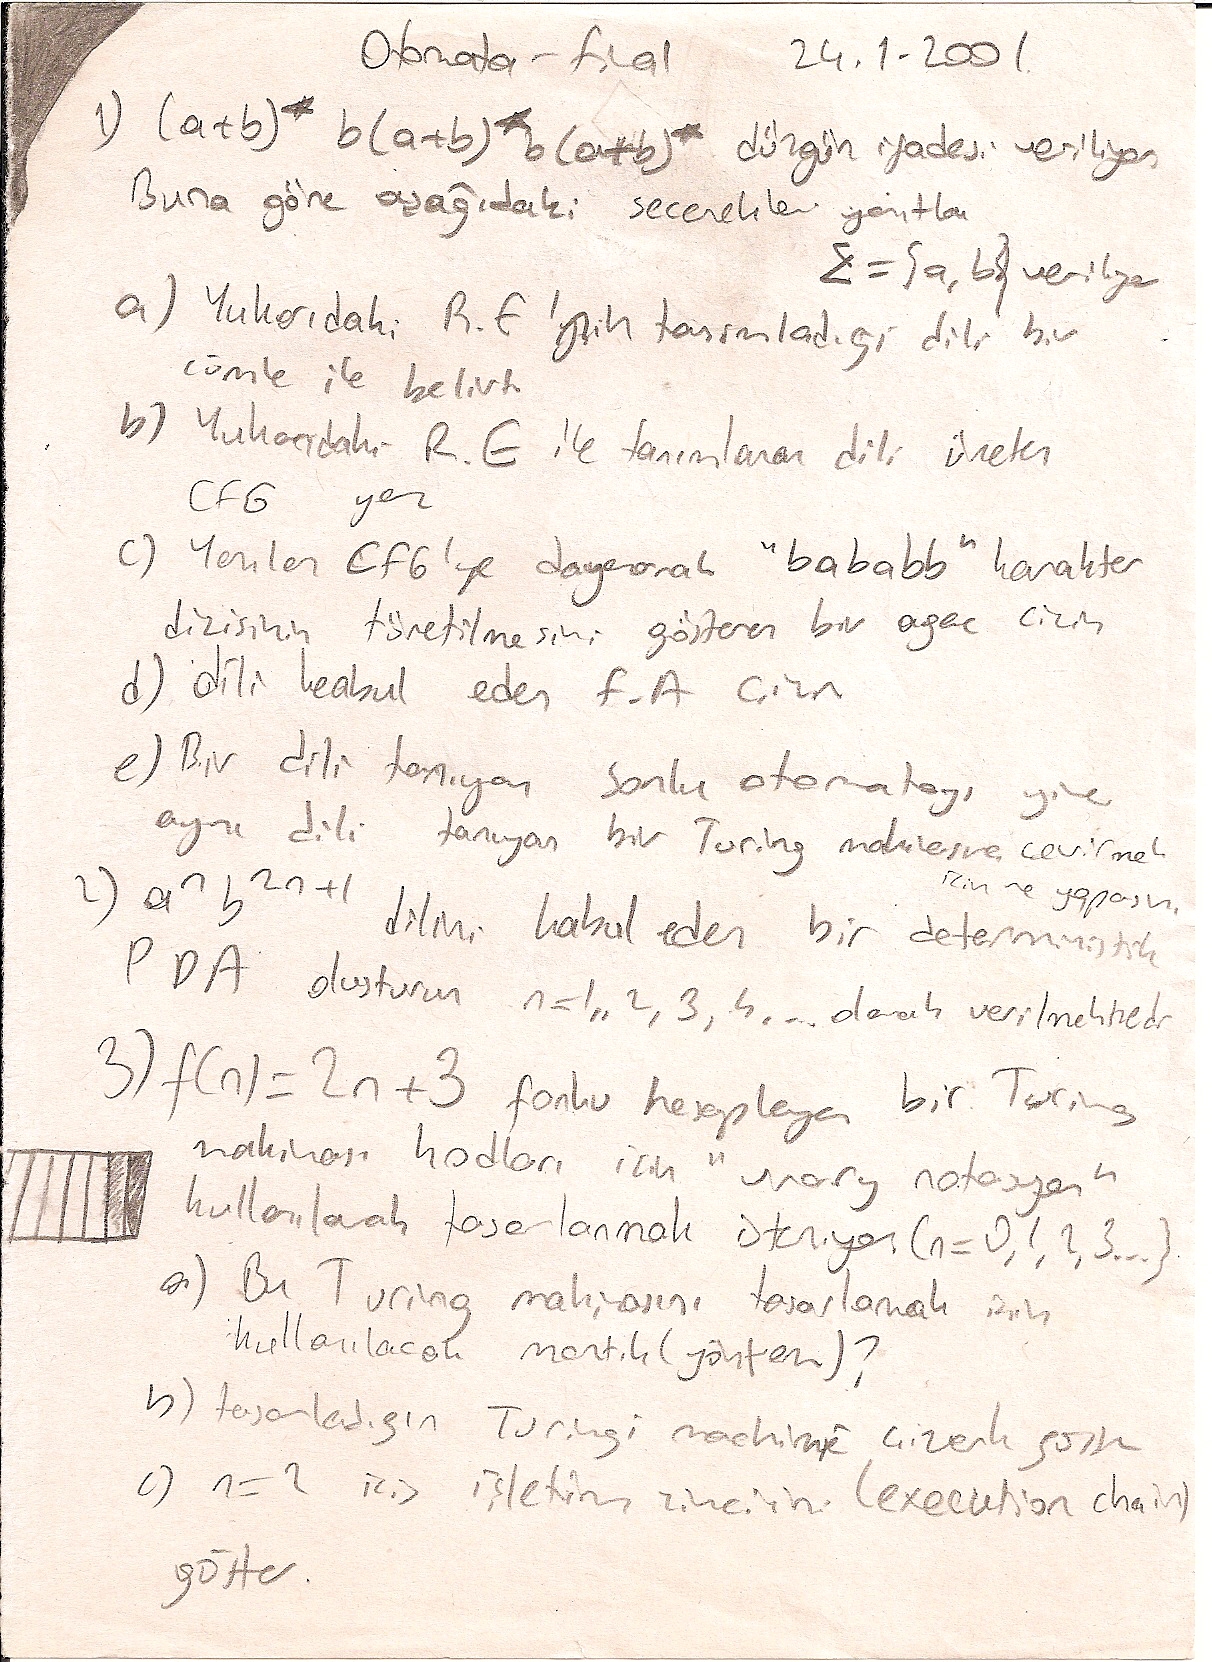 Otomata - final 24.1.2001
1) (a+b)* b(a+b)* b(a+b)* düzgün ifadesi veriliyor
Buna göre aşağıdaki seçenekleri yanıtla
Σ={a, b} veriliyor
a) Yukarıdaki R.E 'nin tanımladığı dili bir
cümle ile belirt
b) Yukarıdaki R.E ile tanımlanan dili üreten
CFG yaz
c) Yazılan CFG'ye dayanarak "bababb" karakter
dizisinin türetilmesini gösteren bir ağaç çizin
d) dili kabul eden F.A çizin
e) Bir dili tanıyan sonlu otomatayı yine
aynı dili tanıyan bir Turing makinasına çevirmek
için ne yaparsın.
2) a^n b^2n+1 dilini kabul eden bir deterministik
PDA oluşturun n=1, 2, 3, 4, ... olarak verilmektedir
3) f(n)=2n+3 fonku hesaplayan bir Turing
makinası kodları için "unary notasyon"
kullanılarak tasarlanmak isteniyor (n=0,1,2,3...}
a) Bu Turing makinasını tasarlamak için
kullanılacak mantık (yöntem)?
b) tasarladığın Turingi machine çizerek göster
c) n=2 için işletim zincirini (execution chain)
göster.